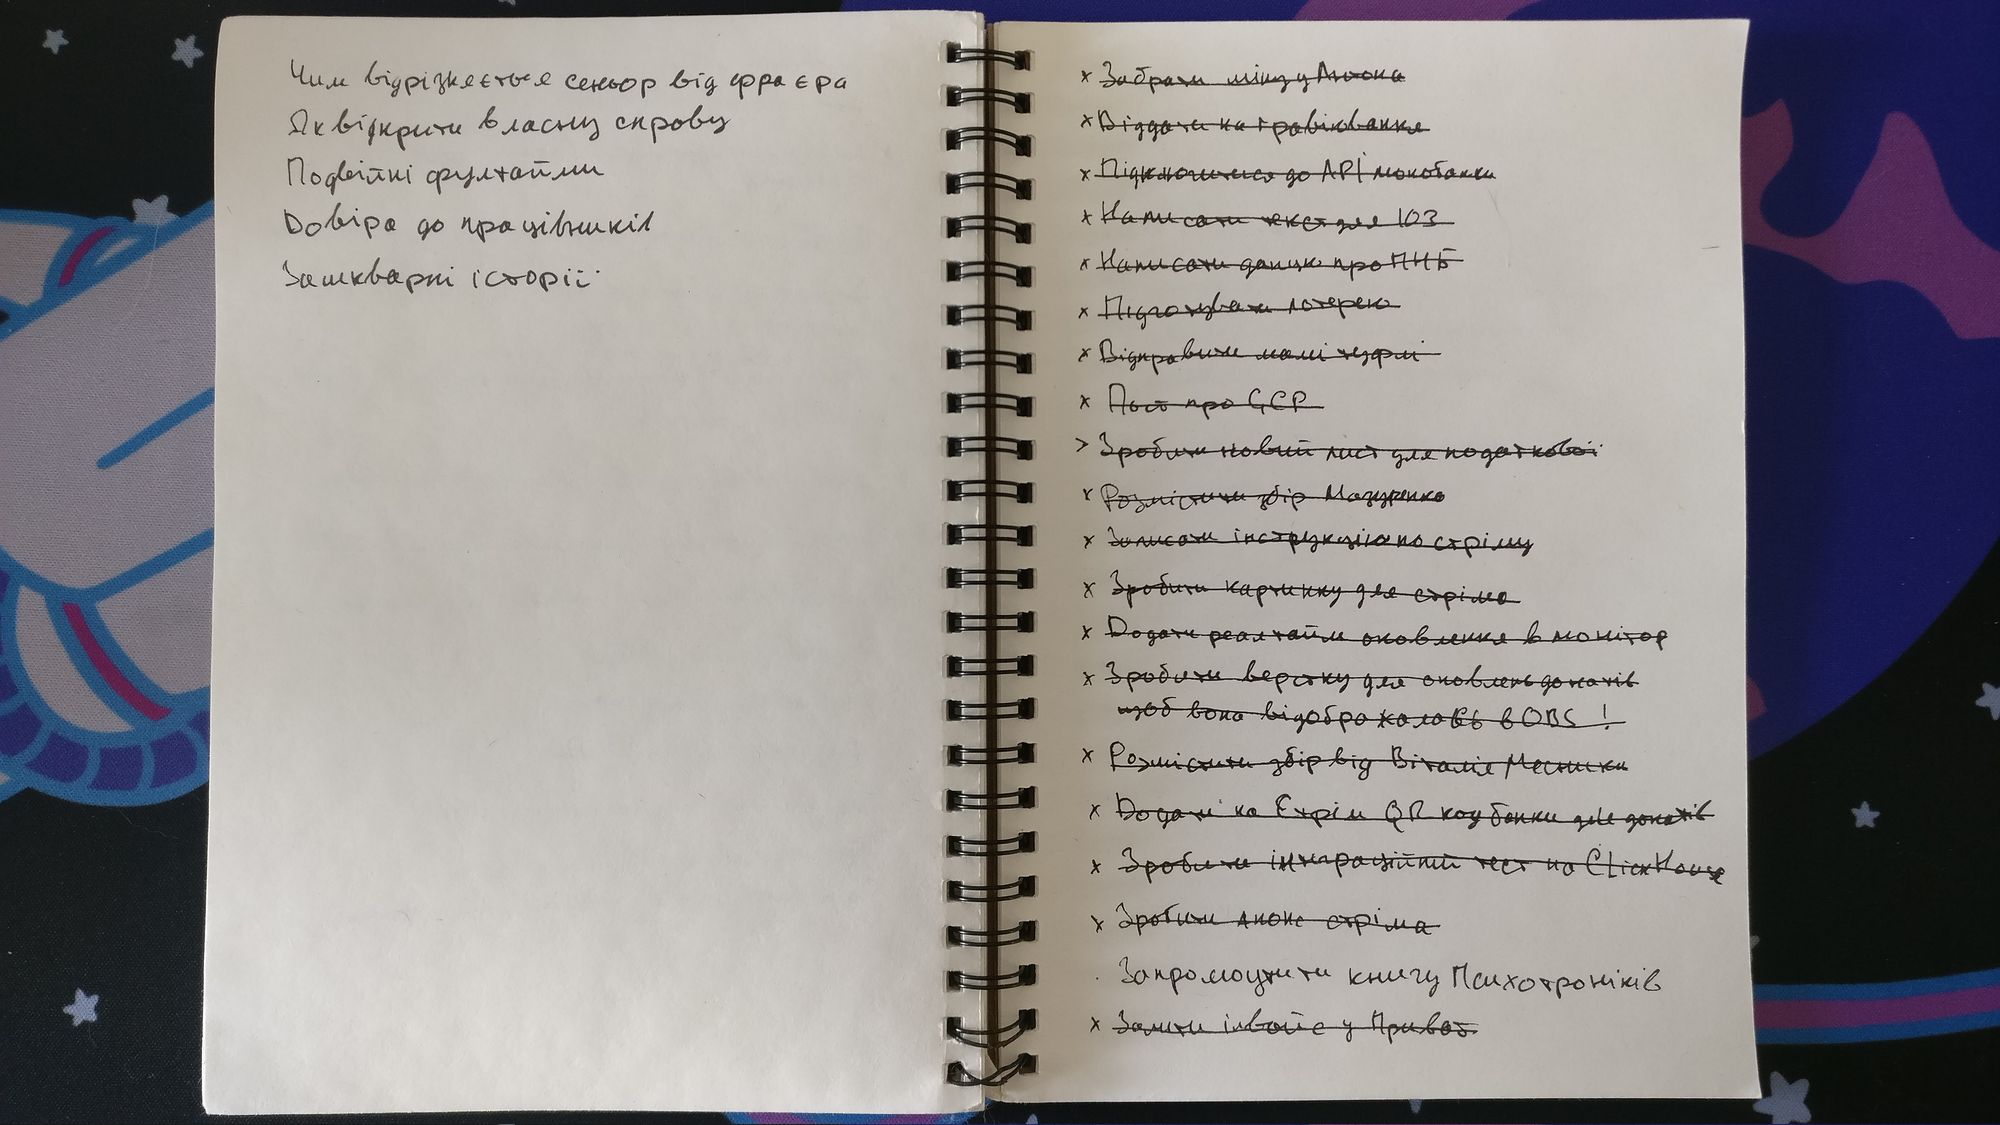 Чим відрізняється сеньор від фраєра
Як відкрити власну справу
Подвійні фултайми
Довіра до працівників
Зашкварні історії
x Забрати міну у Антона
x Віддати на гравіювання
x Підключитися до АРІ монобанки
x Написати текст для ЮЗ
x Написати допис про ПНБ
x Підготувати лотерею
x Відправити мамі туфлі
x Пост про GCP
> Зробити новий лист для податкової
x Розмістити збір Мазуренко
x Записати інструкцію по стріму
x Зробити картинку для стріма
x Додати реалтайм оновлення в монітор
x Зробити верстку для оновлень донатів
щоб вона відображалась в OBS !
x Розмістити збір від Віталія Месника
x Додати на Стрім QR код банки для донатів
x Зробити інтеграційний тест на ClickHouse
x Зробити анонс стріма
. Запромоутити книгу Психотроніків
x Залити інвойс у Приват